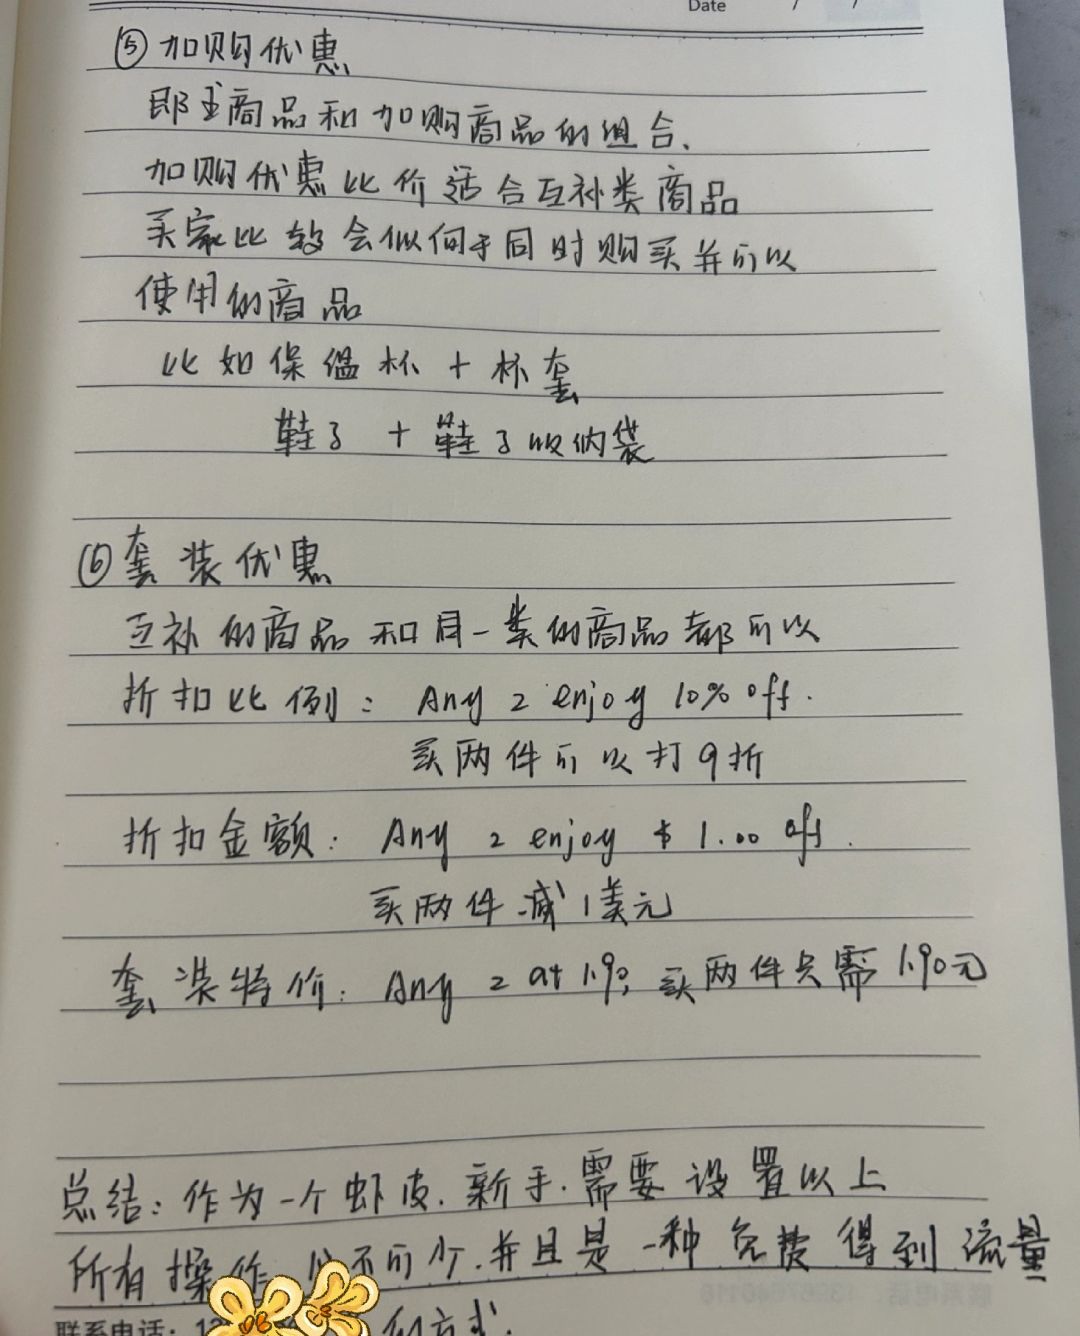 Date / /
⑤加购优惠
即主商品和加购商品的组合、
加购优惠比价适合互补类商品
买家比较会倾向于同时购买并可以
使用的商品
比如保温杯+杯套
鞋子+鞋子收纳袋
⑥套装优惠
互补的商品和同一类的商品都可以
折扣比例：Any 2 enjoy 10% off.
买两件可以打9折
折扣金额：Any 2 enjoy $1.00 off.
买两件减1美元
套装特价：Any 2 at 1.9，买两件只需1.90元
总结：作为一个虾皮.新手.需要设置以上
所有操作 不可少.并且是一种免费得到流量
联系电话：13
的方式.